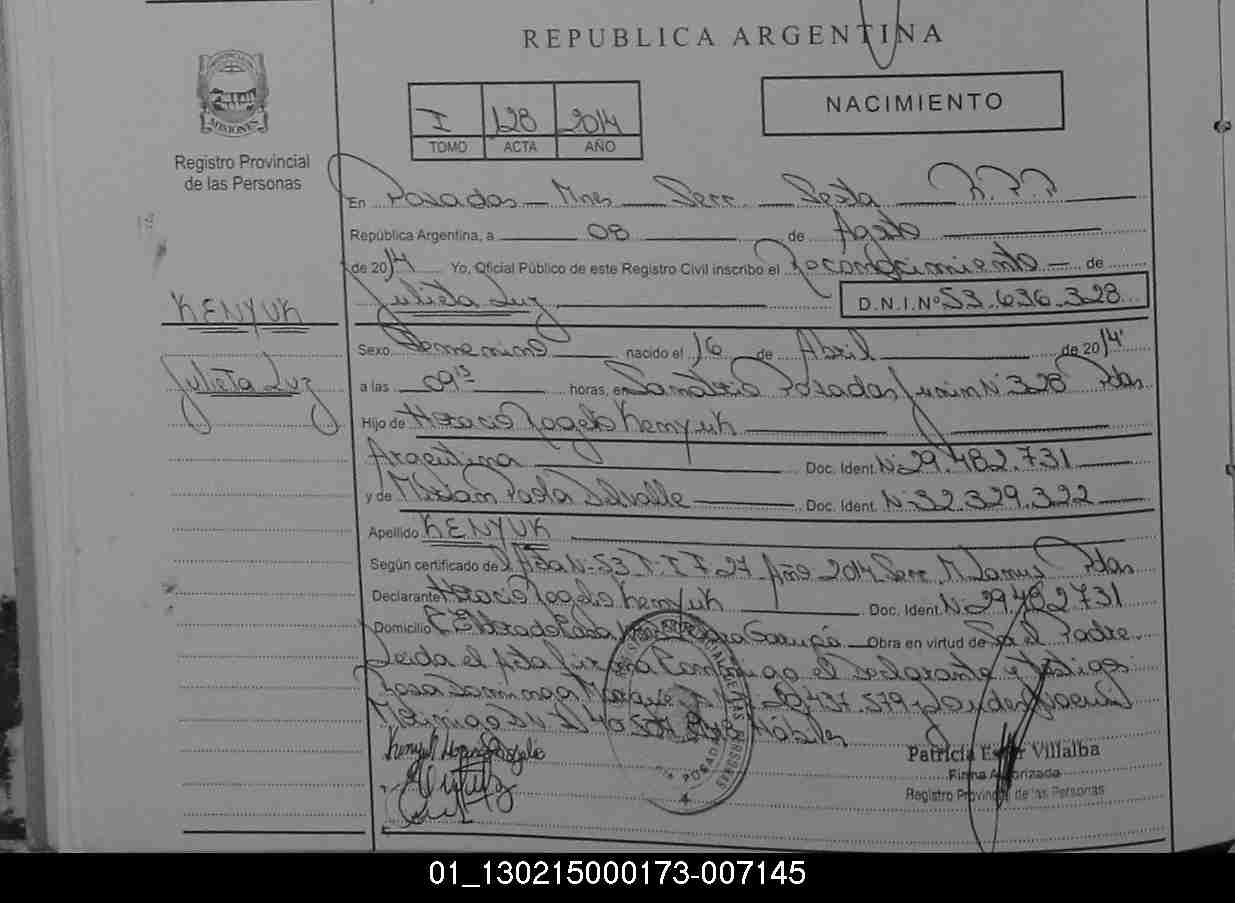 REPUBLICA ARGENTINA
MISIONES
Registro Provincial
de las Personas
I 128 2014
TOMO ACTA AÑO
NACIMIENTO
En Posadas Mnes Secc. Sexta R.P.P
República Argentina, a 08 de Agosto
de 2014 Yo, Oficial Público de este Registro Civil inscribo el Reconocimiento de
Julieta Luz D.N.I.Nº 53.636.328
KENYUK
Julieta Luz
Sexo Femenino nacido el 16 de Abril de 2014
a las 09 15 horas, en Sanatorio Posadas Junin Nº 328 Pdas
Hijo de Horacio Rogelio Kenyuk
Argentina Doc. Ident. Nº 29.482.731
y de Miriam Paola Delvalle Doc. Ident. Nº 32.329.322
Apellido KENYUK
Según certificado de Acta Nº 53 T I F 27 Año 2014 Secc. Pdas
Declarante Horacio Rogelio Kenyuk Doc. Ident. Nº 29.482.731
Domicilio Garupá Obra en virtud de Ser el Padre
Leida el Acta Firma Conmigo el Declarante y testigos
Rosa 437.579
Hábiles
Kenyuk Horacio Rogelio
POSADAS
Patricia Ester Villalba
Firma Autorizada
Registro Provincial de las Personas
01_130215000173-007145